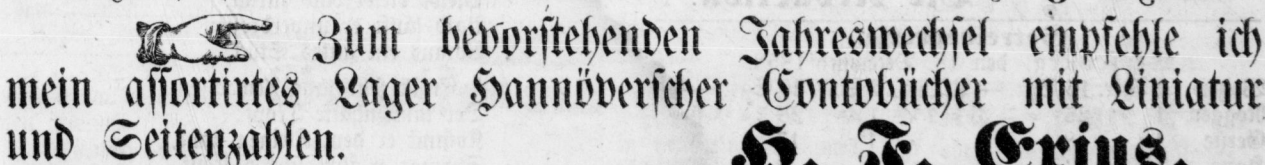 ☞ Zum bevorstehenden Jahreswechsel empfehle ich
mein assortirtes Lager Hannöverscher Contobücher mit Liniatur
und Seitenzahlen.
H. F. Erius.